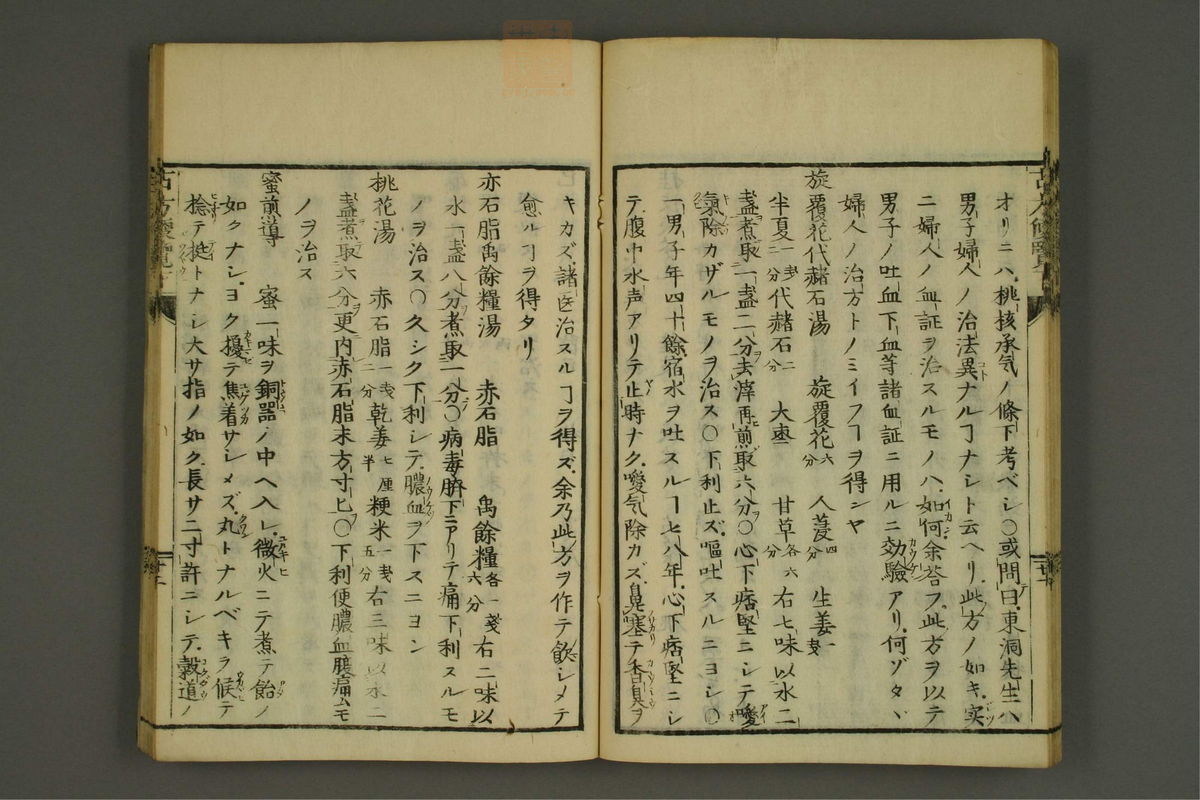 オリニハ桃核承気ノ條下考ベシ〇或問曰東洞先生ハ
男子婦人ノ治法異ナルヿナシト云ヘリ此方ノ如キ実
ニ婦人ノ血証ヲ治スルモノハ如何余荅フ此方ヲ以テ
男子ノ吐血下血等諸血証ニ用ルニ効驗アリ何ゾタヾ
婦人ノ治方トノミイフヿヲ得ンヤ
旋覆花代赭石湯 旋覆花六分 人参四分 生姜一戔
半夏一戔二分 代赭石二分 大棗 甘草各六分 右七味以水二
盞煮取一盞二分去滓再煎取六分〇心下痞堅ニシテ噯
氣除カザルモノヲ治ス〇下利止ズ嘔吐スルニヨシ〇
一男子年四十餘宿水ヲ吐スルヿ七八年心下痞堅ニシ
テ腹中水声アリテ止時ナク噯気除カズ鼻塞テ香臭ヲ
キカズ諸医治スルヿヲ得ズ余乃此方ヲ作テ飲シメテ
愈ルヿヲ得タリ
赤石脂禹餘糧湯 赤石脂 禹餘糧各一戔六分 右二味以
水一盞八分煮取一分〇病毒臍下ニアリテ痛下利スルモ
ノヲ治ス〇久シク下利シテ膿血ヲ下スニヨシ
桃花湯 赤石脂一戔二分 乾姜七厘半 粳米一戔五分 右三味以水二
盞煮取六分更内赤石脂末方寸匕〇下利便膿血腹痛ムモ
ノヲ治ス
蜜煎導 蜜一味ヲ銅器ノ中ヘ入レ微火ニテ煮テ飴ノ
如クナシヨク擾テ焦着サシメズ丸トナルベキヲ候テ
捻テ挺トナシ大サ指ノ如ク長サ二寸許ニシテ穀道ノ